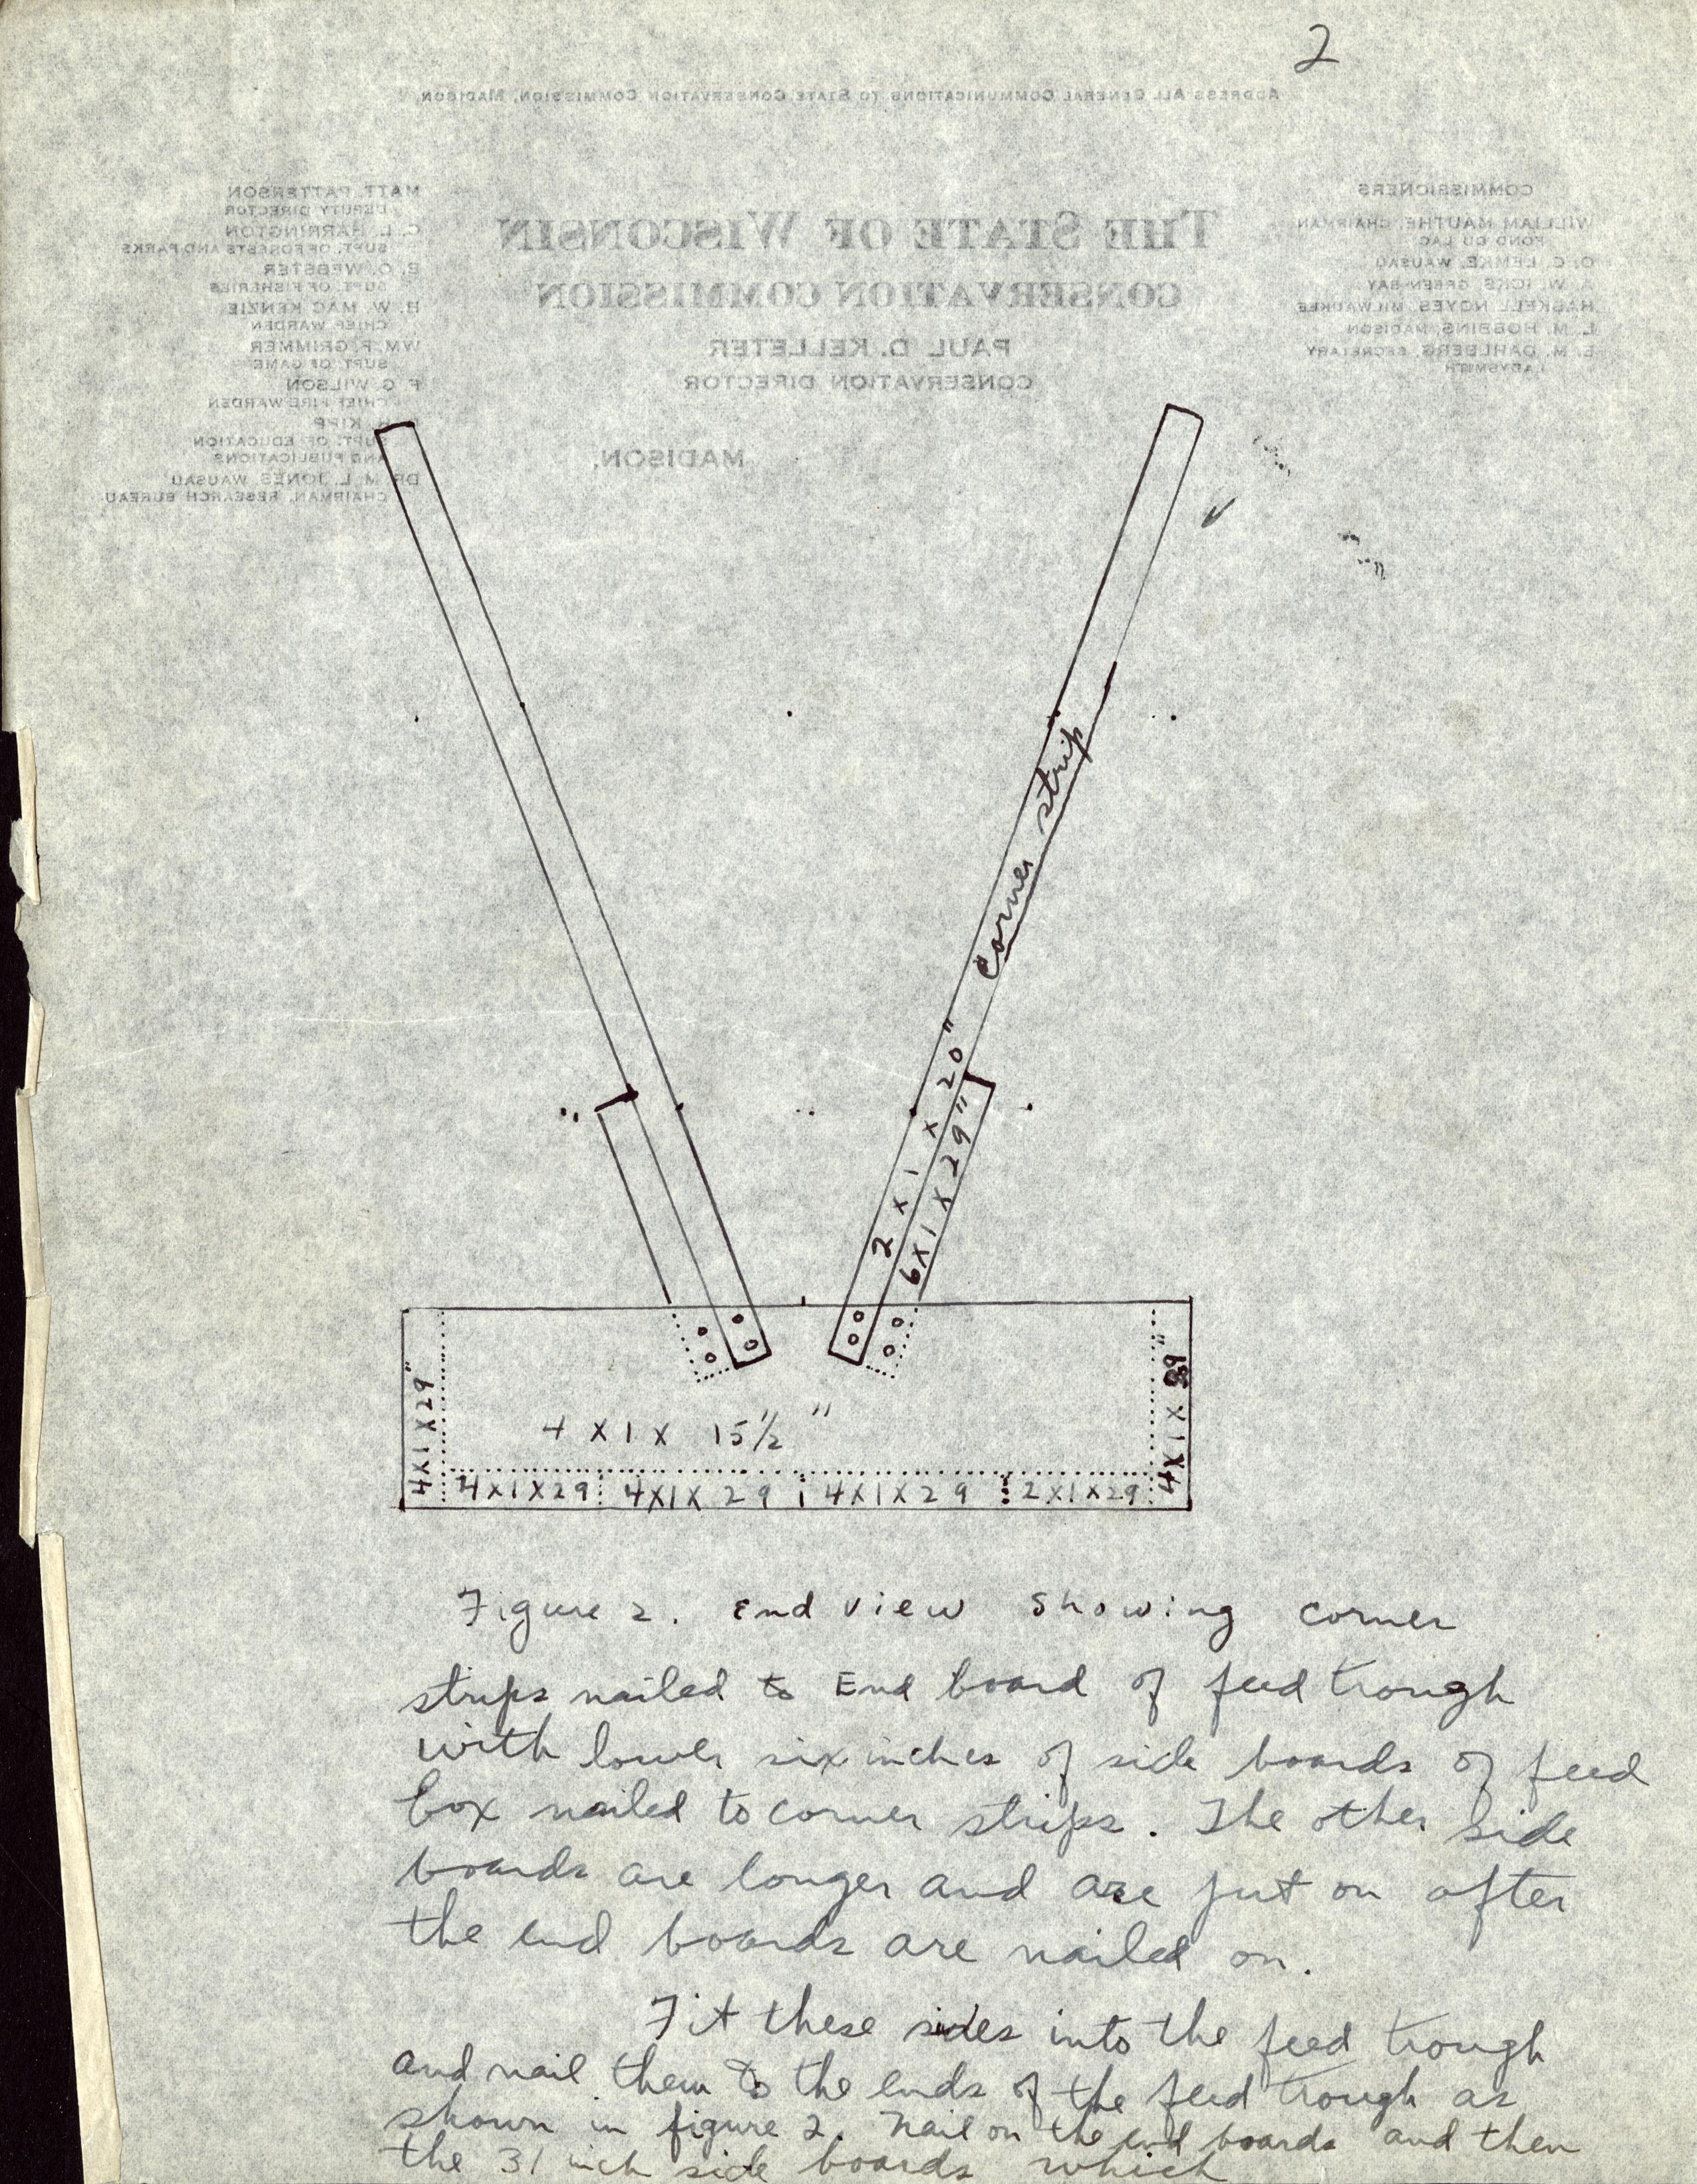 2
ADDRESS ALL GENERAL COMMUNICATIONS TO STATE CONSERVATION COMMISSION, MADISON.
COMMISSIONERS
WILLIAM MAUTHE, CHAIRMAN
FOND DU LAC
O. C. LEMKE, WAUSAU
A. W. ICKS, GREEN BAY
HASKELL NOYES, MILWAUKEE
L. M. HOBBINS, MADISON
E. M. DAHLBERG, SECRETARY
LADYSMITH
THE STATE OF WISCONSIN
CONSERVATION COMMISSION
PAUL D. KELLETER
CONSERVATION DIRECTOR
MADISON.
MATT PATTERSON
DEPUTY DIRECTOR
C. L. HARRINGTON
SUPT. OF FORESTS AND PARKS
B. O. WEBSTER
SUPT. OF FISHERIES
H. W. MAC KENZIE
CHIEF WARDEN
WM. F. GRIMMER
SUPT. OF GAME
F. G. WILSON
CHIEF FIRE WARDEN
KIPP
SUPT. OF EDUCATION
AND PUBLICATIONS
DR. M. L. JONES, WAUSAU
CHAIRMAN, RESEARCH BUREAU
2 x 1 x 20" corner strip
6 x 1 x 29"
4 x 1 x 29"
4 x 1 x 15 1/2"
4 x 1 x 29 4 x 1 x 29 4 x 1 x 29 2 x 1 x 29
4 x 1 x 29"
Figure 2. End view showing corner
strips nailed to End board of feed trough
with lower six inches of side boards of feed
box nailed to corner strips. The other side
boards are longer and are put on after
the end boards are nailed on.
Fit these sides into the feed trough
and nail them to the ends of the feed trough as
shown in figure 2. Nail on the end boards and then
the 31 inch side boards which